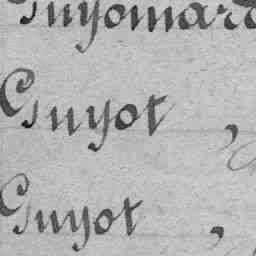 Guyomard
Guyot ,
Guyot ,